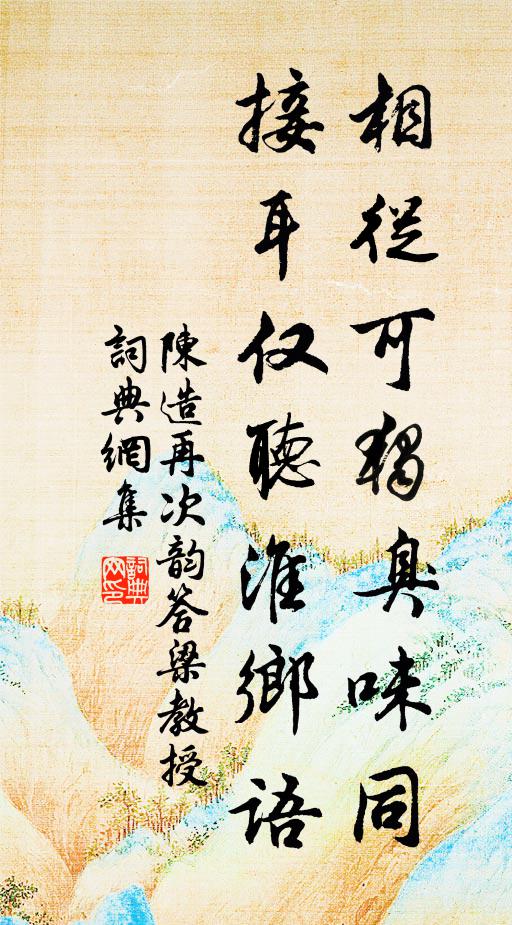 相從可獨臭味同
接耳仅聽淮鄉語
陳造再次韵答梁教授
詞典網集
詞典網印